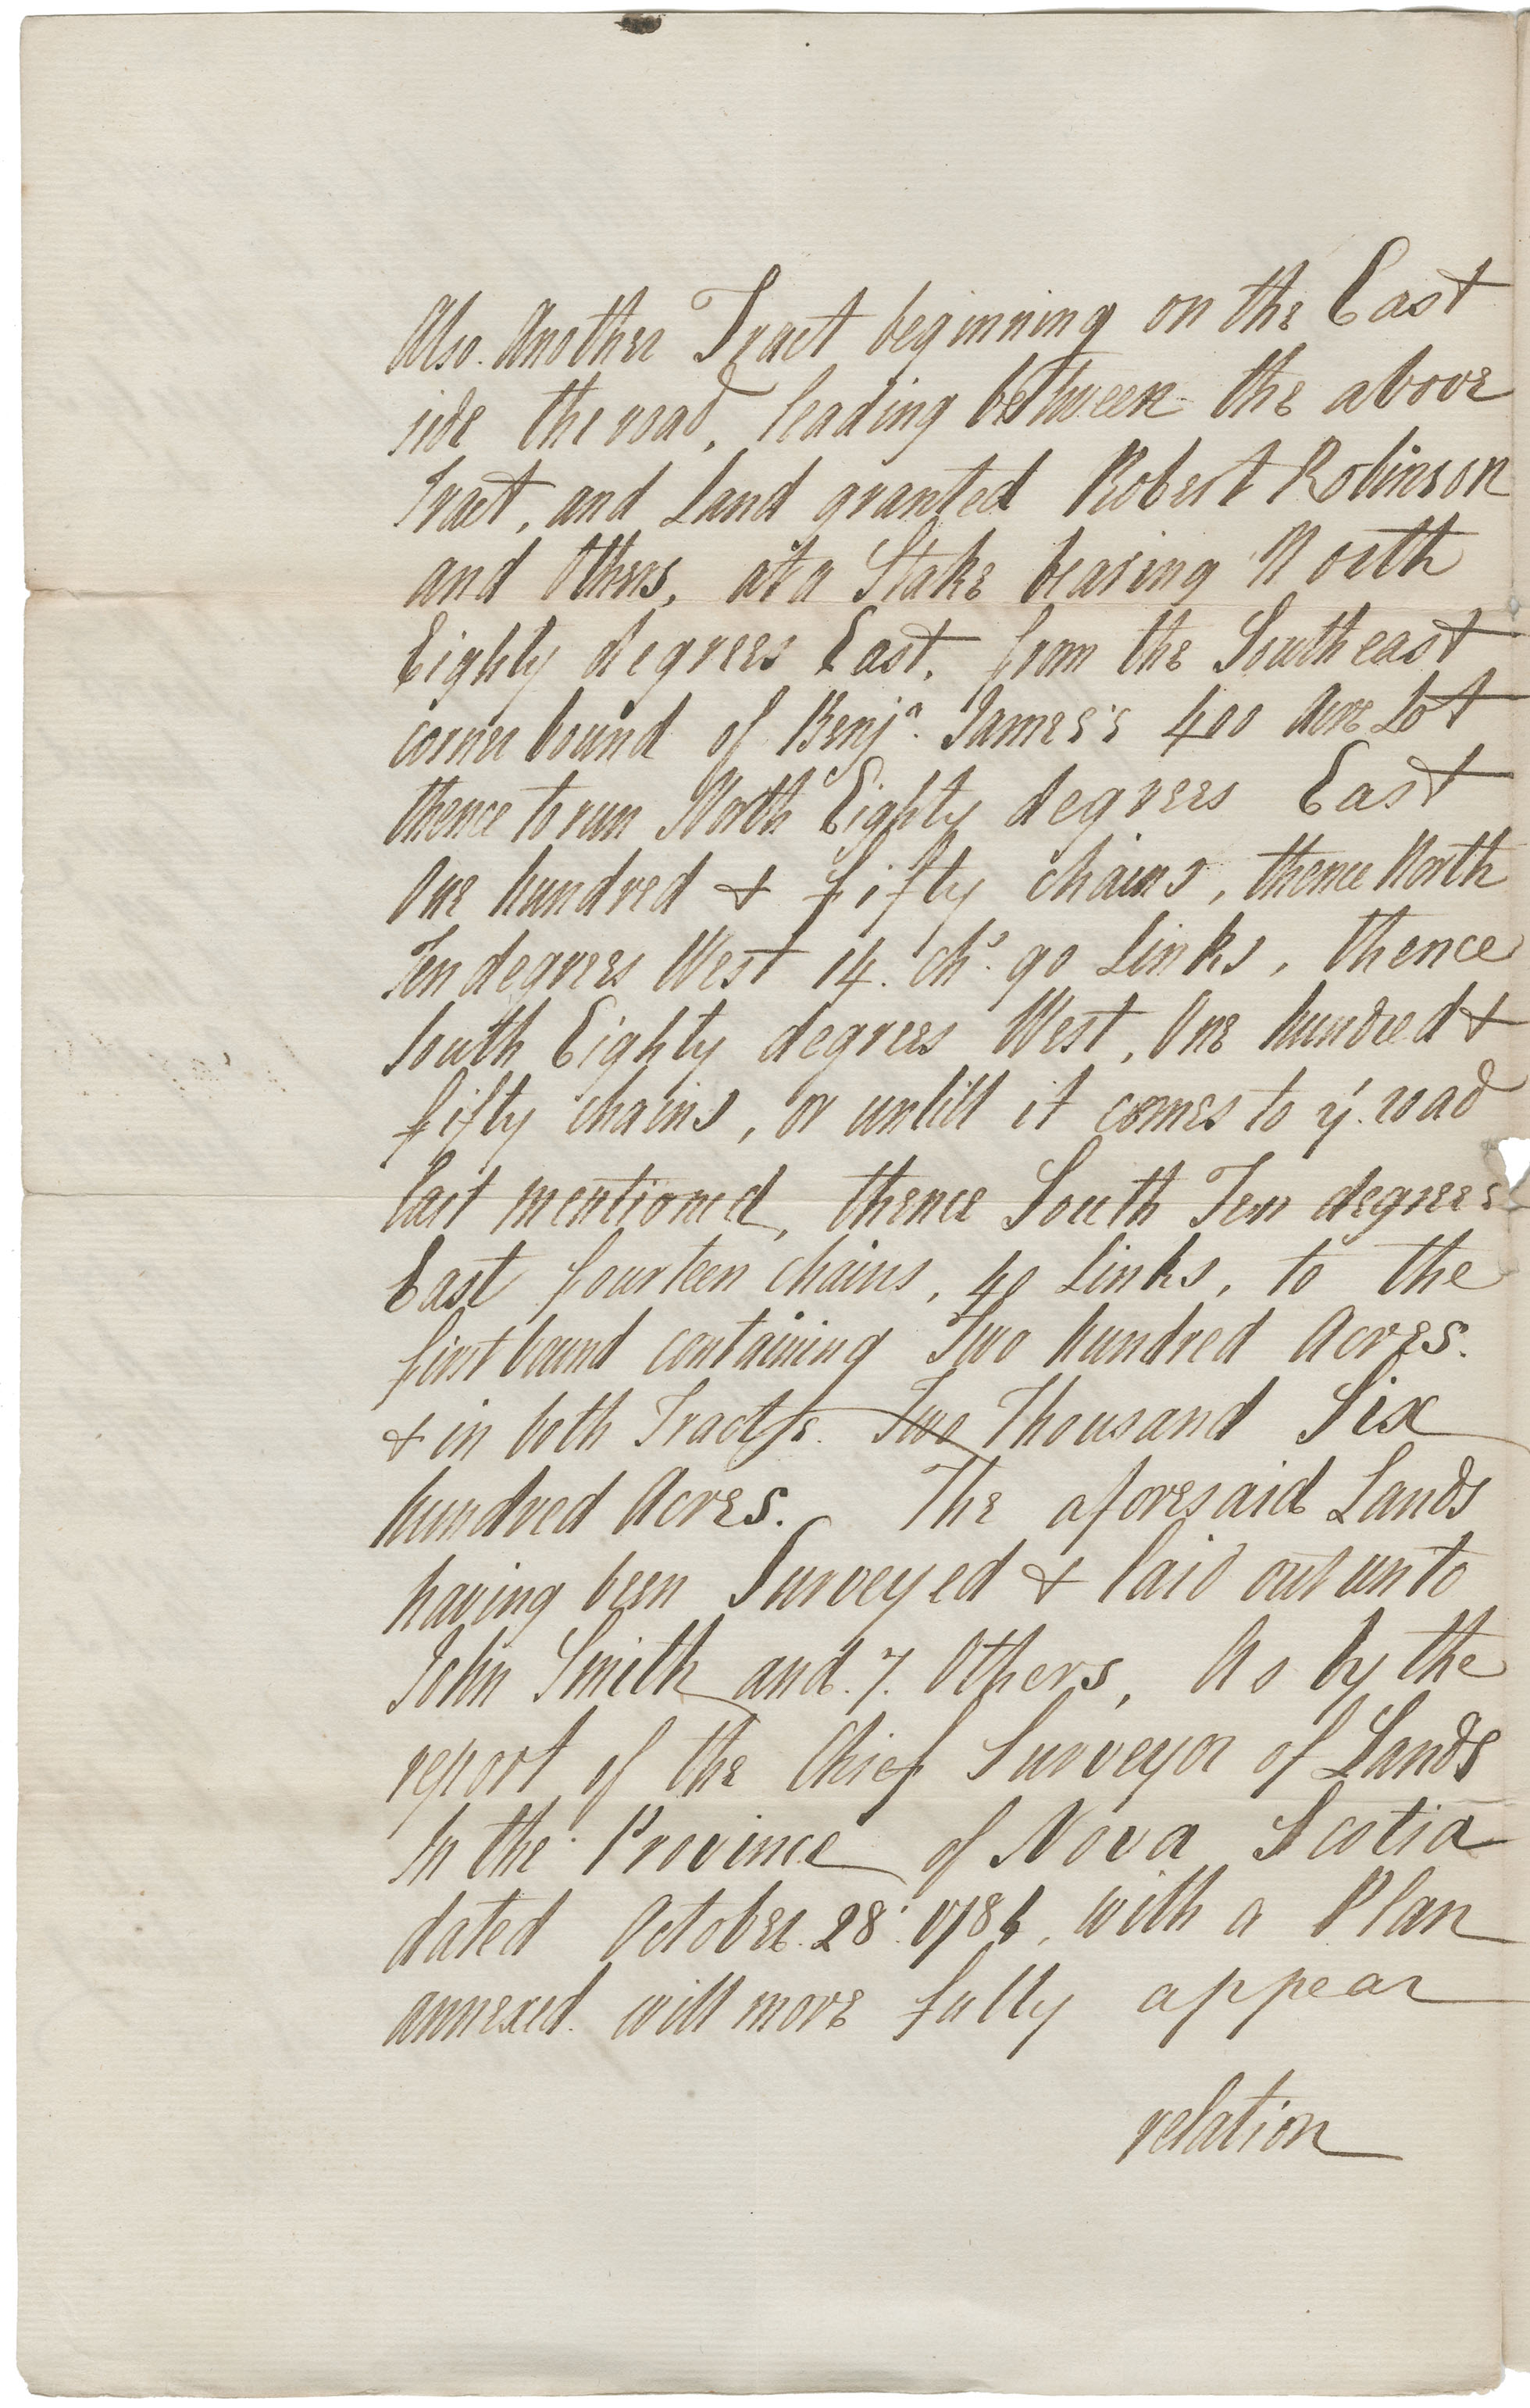 Also. Another Tract beginning on the East
side the road, leading between the above
Tract, and Land granted Robert Robinson
and Others, at a Stake bearing North
Eighty degrees East, from the Southeast
corner bound of Benjn. James's 400 Acre Lot
thence to run North Eighty degrees East
One hundred & fifty chains, thence North
Ten degrees West 14. chs. 90 Links, thence
South Eighty degrees West, One hundred &
fifty chains, or untill it comes to ye. road
last mentioned, thence South Ten degrees
East fourteen chains, 40 Links, to the
first bound containing Two hundred Acres.
& in both Tracts. Two Thousand Six
hundred Acres. The aforesaid Lands
having been Surveyed & laid out unto
John Smith and. 7. Others, As by the
report of the Chief Surveyor of Lands
In the Province of Nova Scotia
dated October. 28. with a Plan
annexed. will more fully appear
relation